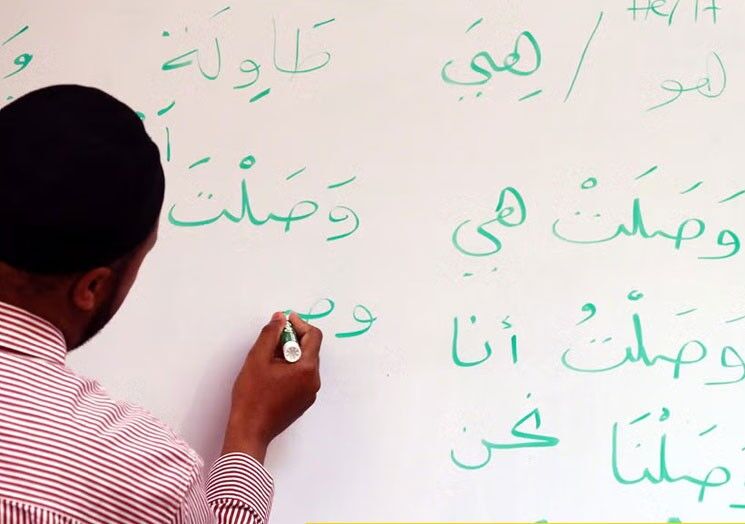 He/It
هو / هِيَ طَاوِلَة
وَصَلَتْ هي وَصَلْتَ
وَصَلْتُ أنا وصـ
وَصَلْنَا نحن